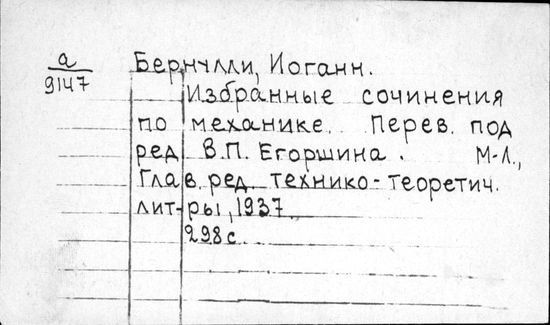 а
9147
Бернулли, Иоганн.
Избранные сочинения
по механике. Перев. под
ред. В.П. Егоршина. М-Л.,
Глав. ред. технико-теоретич.
лит-ры, 1937.
298 с.